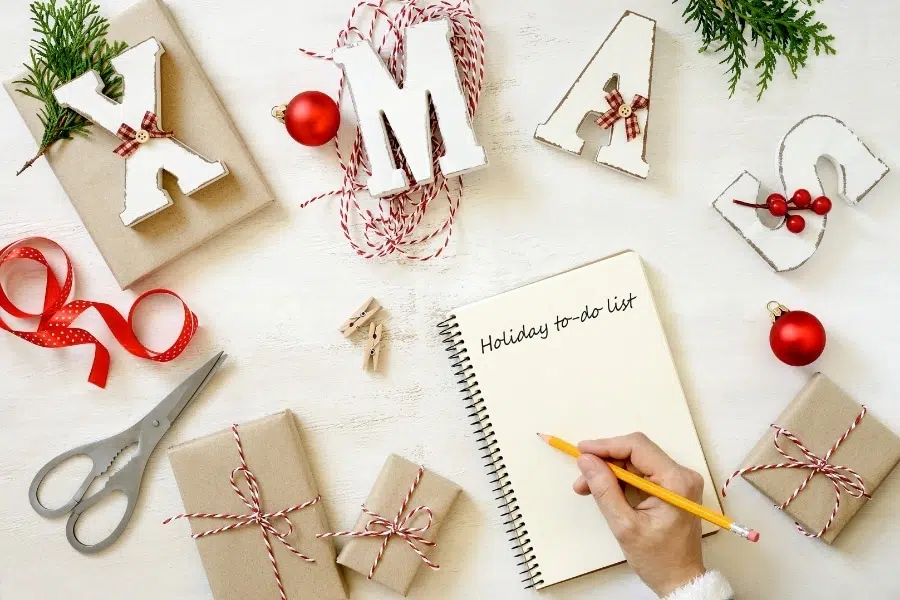 XMAS
Holiday to-do list